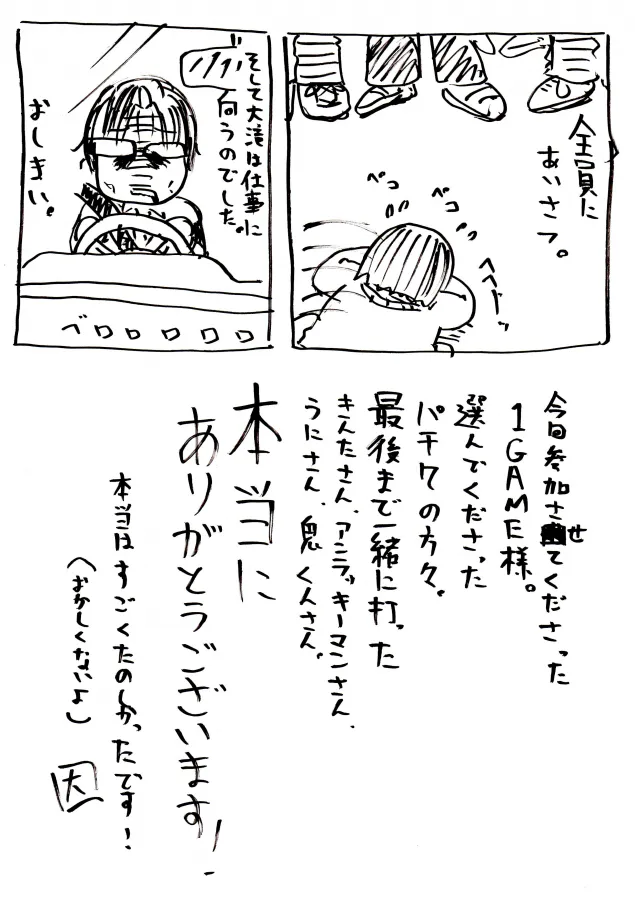 全員に
あいさつ。
ペコ
ペコ
へへーッ
そして大滝は仕事に
向うのでした。
おしまい。
ベロロロロロ
今回参加させてくださった
1GAME様。
選んでくださった
パチ7の方々。
最後まで一緒に打った
きんたさん、アンラッキーマンさん、
うにさん、鬼くんさん、
本当に
ありがとうございます!
本当はすごくたのしかったです!
(おかしくないよ)